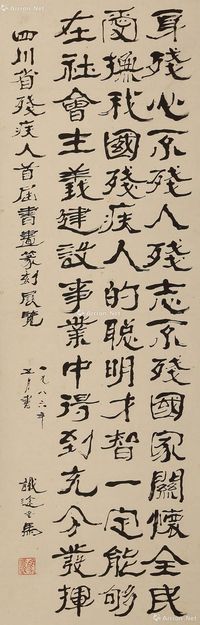 身殘心不殘人殘志不殘國家關懷全民
愛撫我國殘疾人的聰明才智一定能够
在社會主義建設事業中得到充分發揮
四川省殘疾人首届書畫篆刻展览
一九八六年
五月書
識途老馬